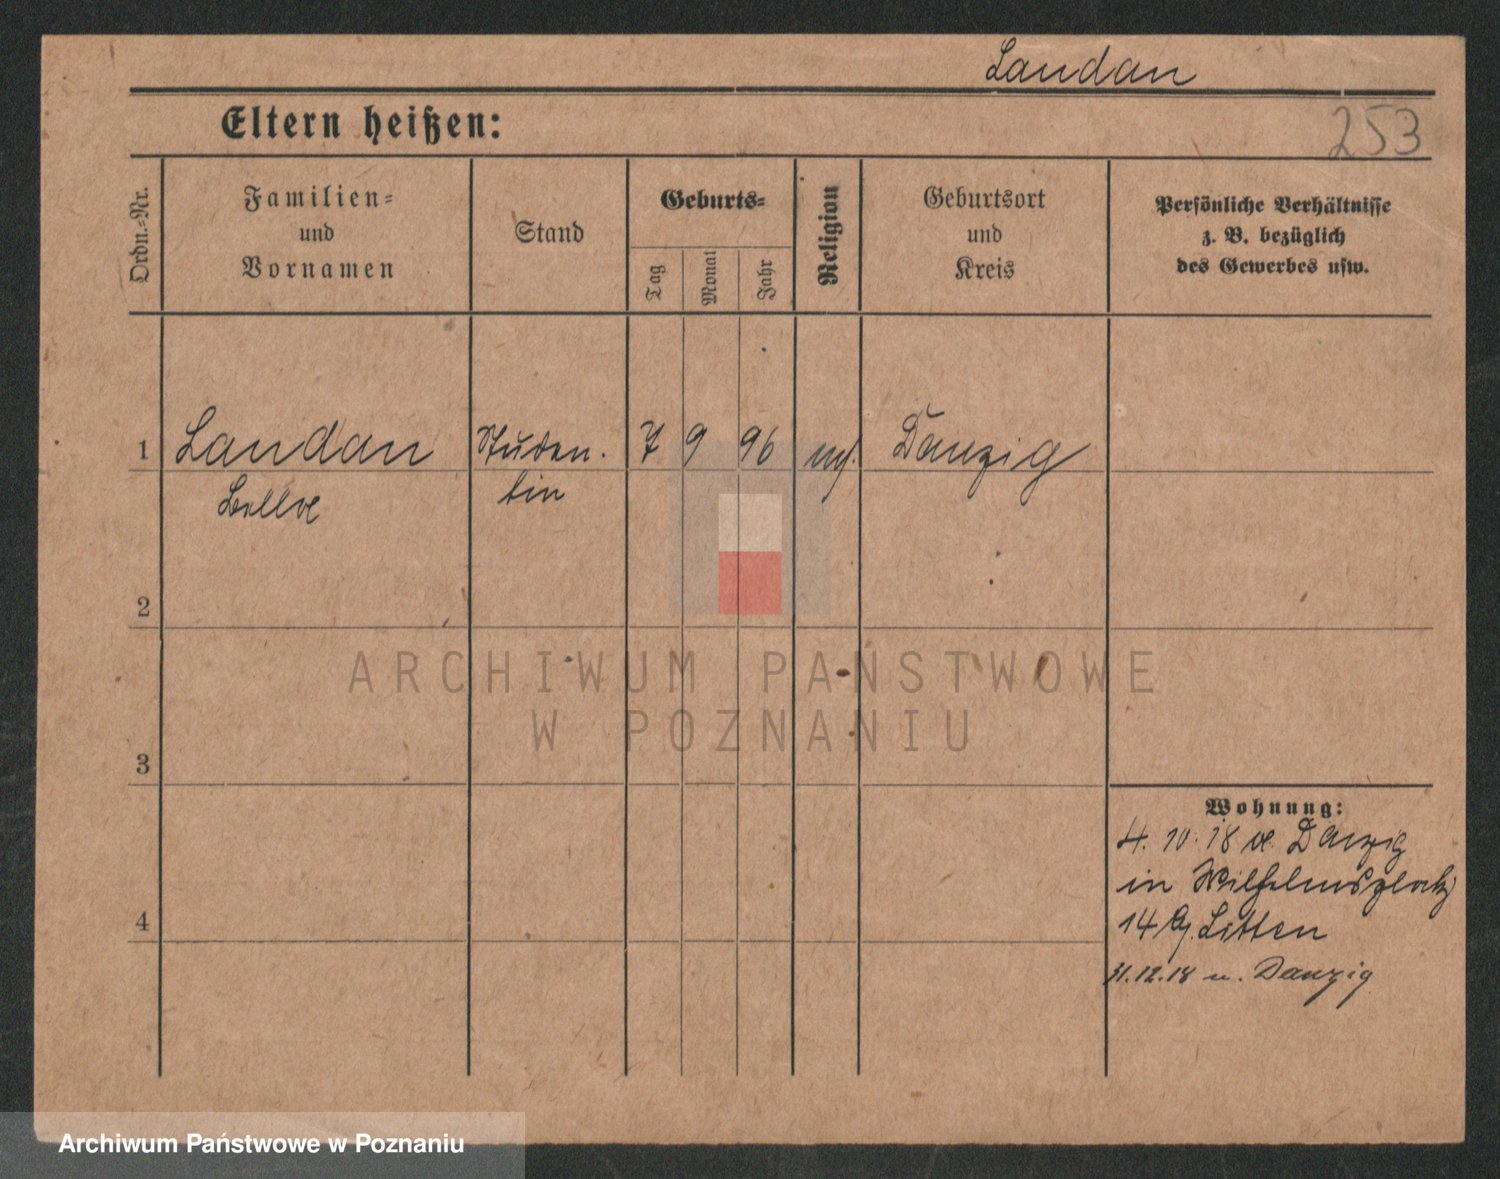 Landau
Eltern heißen:
253
Ordn.-Nr.
Familien-
und
Vornamen
Stand
Geburts-
Tag
Monat
Jahr
Religion
Geburtsort
und
Kreis
Persönliche Verhältnisse
z. B. bezüglich
des Gewerbes usw.
1
Landau
Studen-
tin
7
9
96
Danzig
2
ARCHIWUM PAŃSTWOWE
W POZNANIU
3
Wohnung:
4. 10. 18 v. Danzig
in Wilhelmsplatz
4
14 Litten
31.12.18 n. Danzig
Archiwum Państwowe w Poznaniu